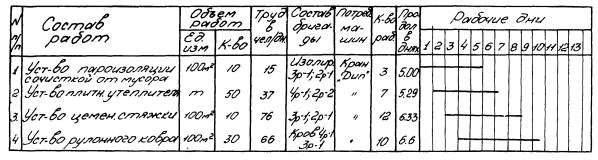 N п/п Состав работ Объем работ Труд в чел/дн. Состав бригады Потреб машин К-во раб. Продол в днях Рабочие дни
Ед. изм К-во 1 2 3 4 5 6 7 8 9 10 11 12 13
1 Уст-во пароизоляции с очисткой от мусора 100м² 10 15 Изолир. 3р-1; 2р-1 Кран "Дип" 3 5.00
2 Уст-во плитн. утеплителя т 50 37 4р-1; 2р-2 " 7 5.29
3. Уст-во цемен. стяжки 100м² 10 76 3р-1; 2р-1 " 12 6.33
4 Уст-во рулонного ковра 100м² 30 66 Кров 4р-1 3р-1 " 10 6.6